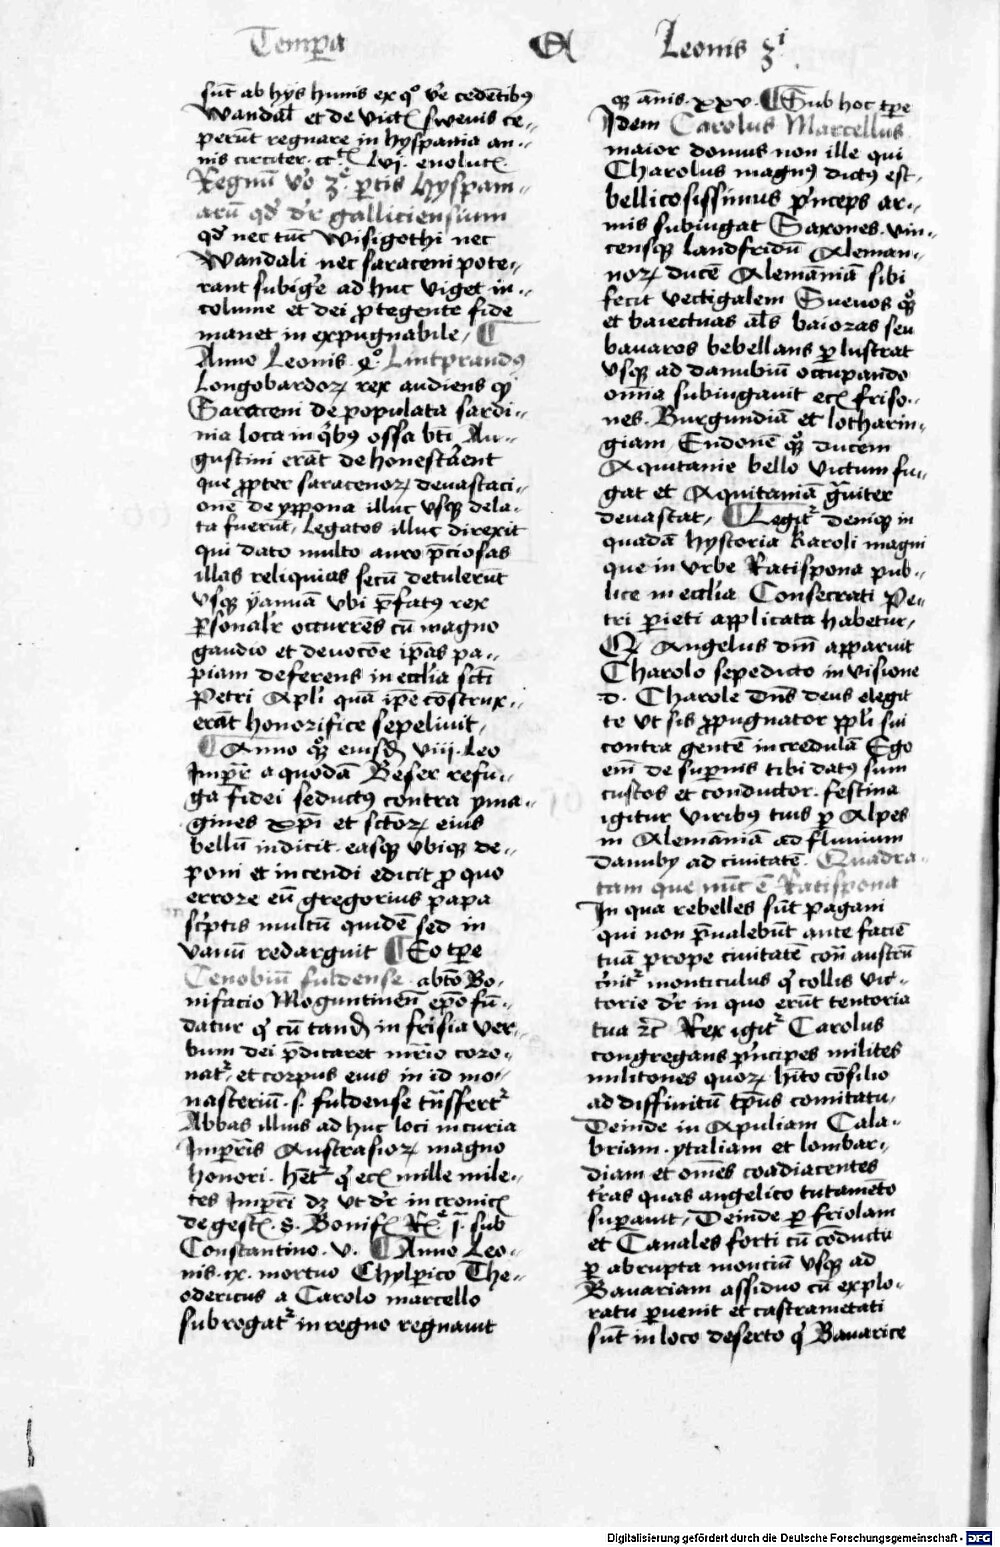 Temp̄a Leonis 3ⁱ
sūt ab hijs hunis ex qº v̄e cedētibꝰ
Wandal̄ et de vict̄ swenis ce-
perūt regnare in hyspania an-
nis circiter evolut̄
Regnū v̄o 3ᵉ p̄tis hyspani-
arū qd̄ dr̄ galliciensium
qd̄ nec tūc wisigothi nec
Wandali nec saraceni pote-
rant subiḡe ad huc viget in-
colume et dei p̄tegente fide
manet in expugnabile
Anno Leonis Lintprandꝰ
Longobardoꝝ rex audiens qꝫ
Saraceni de populata sardi-
nia loca in q̄bꝰ ossa bt̄i Au-
gustini erāt dehonestar̄ent
que ꝓpter saracenoꝝ deuastaci-
onē de yppona illuc vsqꝫ dela-
ta fuerūt Legatos illuc direxit
qui dato multo auro p̄ciosas
illas reliquias secū detulerūt
vsqꝫ yanuā vbi p̄fatꝰ rex
p̄sonalr̄ occurrēs cū magno
gaudio et deuocōe ip̄as pa-
piam deferens in eccl̄ia sct̄i
Petri Apl̄i quā ip̄e cōstrux-
erāt honorifice sepeliuit
Anno qꝫ eiusd̄ viij Leo
Imp̄r a quodā Beser refu-
ga fidei seductꝰ contra yma-
gines xp̄i et sctōꝝ eius
bellū indicit easqꝫ vbiqꝫ de-
poni et incendi edicit ꝓ quo
errore eū gregorius papa
sc̄ptis multū quidē sed in
vanū redarguit Eo tp̄e
Cenobiū fuldense abtō Bo-
nifacio Moguntinēn ep̄o fū-
datur qͥ cū tand̄ in frisia ver-
bum dei p̄dicaret mr̄io coro-
natᷣ et corpus eius in id mo-
nasteriū s. fuldense tn̄sfertᷣ
Abbas illius ad huc loci in curia
Imp̄ris Austrasioꝝ magno
honori hētᷣ qͥ ec̄ mille mile-
tes Imp̄ri dꝫ vt dr̄ in cronic̄
de gest̄ S. Bonif̄ sub
Constantino v. Anno Leo-
nis ix. mortuo Chylp̄ico The-
odericus a Carolo marcello
subrogatᷣ in regno regnauit
qꝫ ānis xxv. Sub hoc tp̄e
Idem Carolus Marcellus
maior domus non ille qui
Charolus magnꝰ dictꝰ est
bellicosissimus p̄nceps ar-
mis subiugat Saxones vin-
censqꝫ landfridū Aleman-
noꝝ ducē Alemāniā sibi
fecit vectigalem Sueuos qꝫ
et baiectuas al̄s baioras seu
bauaros bebellans p̄lustrat
vsqꝫ ad danubiū occupando
om̄ia subiugauit ec̄ friso-
nes Burgundiā et lotharin-
giam Endonē qꝫ ducem
Aquitanie bello victum fu-
gat et Aquitaniā gᷓuiter
deuastat Legitᷣ deniqꝫ in
quadā hystoria Karoli magni
que in vrbe Ratispona pub-
lice in eccl̄ia Consecrati Pe-
tri p̄ieti applicata habetur
Angelus dn̄i apparuit
Charolo sepedicto in visione
d. Charole dn̄s deus elegit
te vt sis ꝓpugnator ppl̄i sui
contra gentē incredulā Ego
em̄ de sup̄nis tibi datꝰ sum
custos et conductor festina
igitur viribꝰ tuis p̄ Alpes
in Alemāniā ad fluuium
Danuby ad ciuitatē Quadra-
tam que nūc ē Ratispona
In qua rebelles sūt pagani
qui non p̄ualebūt ante faciē
tuā prope ciuitatē con̄ austrū
monticulus qͥ collis vic-
torie dr̄ in quo erūt tentoria
tua ꝛc̄ Rex igitᷣ Carolus
congregans p̄ncipes milites
militones quoꝝ hīto cōsilio
ad diffinitū tp̄us comitatu
Deinde in Apuliam Cala-
briam ytaliam et lombar-
diam et om̄es coadiacentes
tr̄as quas angelico tutamēto
sup̄auit Deinde p̄ friolam
et Canales forti cū cōductu
p̄ abrupta monciū vsqꝫ ad
Bauariam assiduo cū explo-
ratu p̄uenit et castrametati
sūt in loco deserto qͥ Bauarice
Digitalisierung gefördert durch die Deutsche Forschungsgemeinschaft - DFG